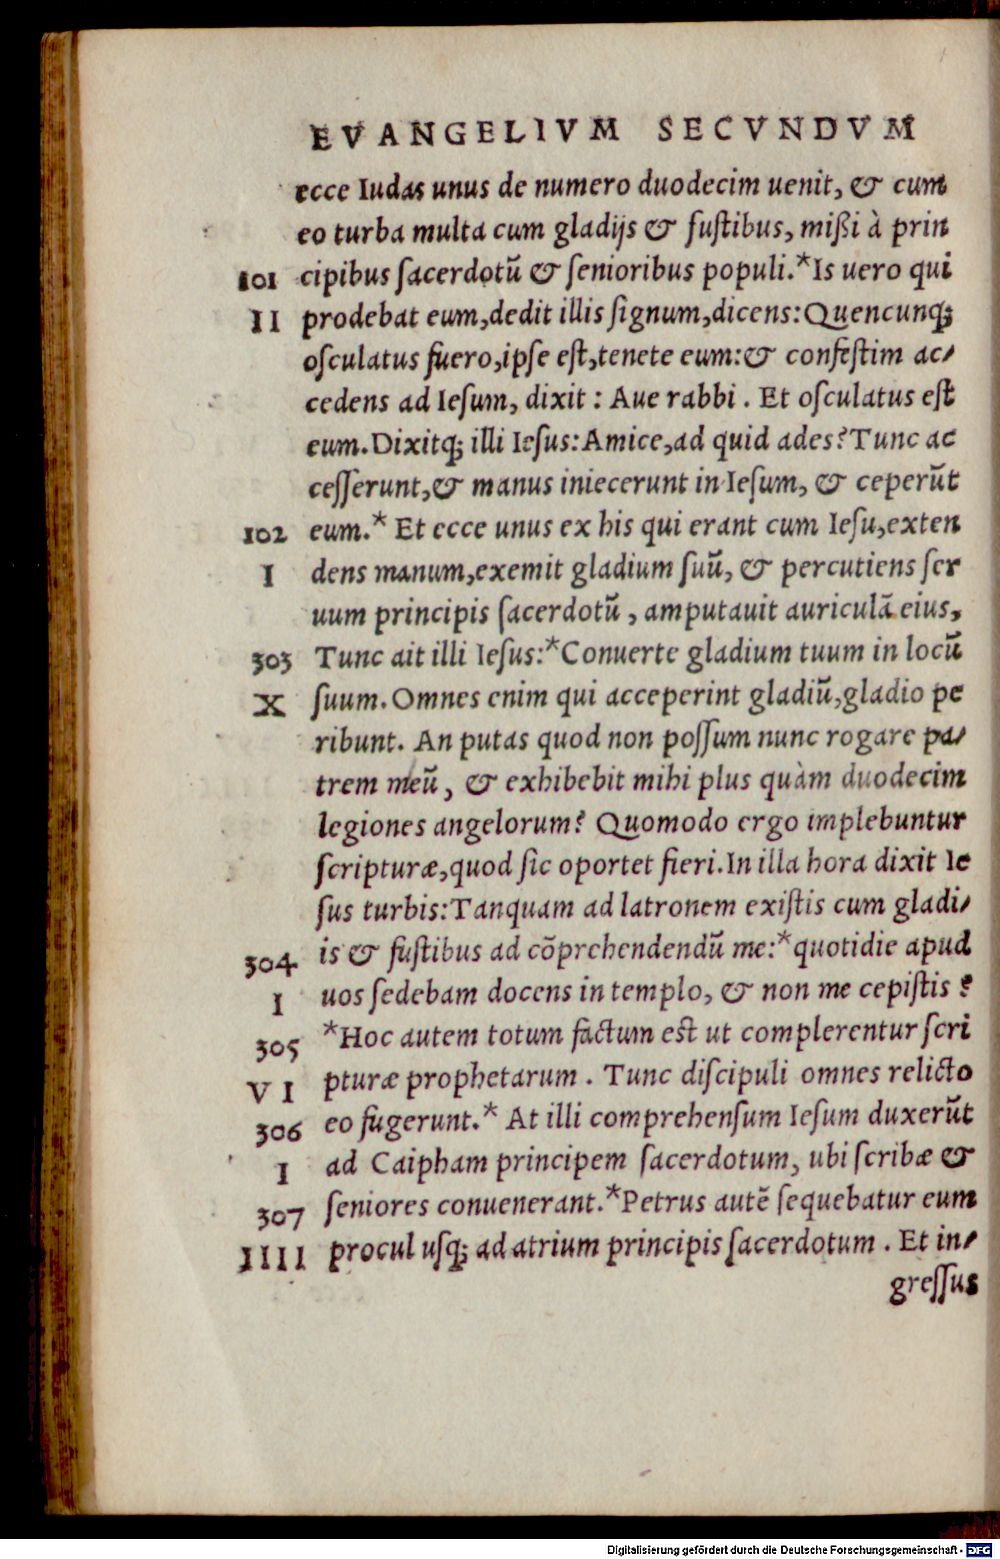 EVANGELIVM SECVNDVM
ecce Iudas unus de numero duodecim uenit, & cum
eo turba multa cum gladijs & fuſtibus, mißi à prin
101 cipibus ſacerdotũ & ſenioribus populi.*Is uero qui
II prodebat eum,dedit illis ſignum,dicens:Quencunq;
oſculatus fuero,ipſe eſt,tenete eum:& confeſtim ac/
cedens ad Ieſum, dixit : Aue rabbi . Et oſculatus eſt
eum.Dixitq; illi Ieſus:Amice,ad quid ades?Tunc ac
ceſſerunt,& manus iniecerunt in Ieſum, & ceperũt
102 eum.* Et ecce unus ex his qui erant cum Ieſu,exten
I dens manum,exemit gladium ſuũ, & percutiens ſer
uum principis ſacerdotũ , amputauit auriculã eius,
303 Tunc ait illi Ieſus:*Conuerte gladium tuum in locũ
X ſuum.Omnes enim qui acceperint gladiũ,gladio pe
ribunt. An putas quod non poſſum nunc rogare pa/
trem meũ , & exhibebit mihi plus quàm duodecim
legiones angelorum? Quomodo ergo implebuntur
ſcripturæ,quod ſic oportet fieri.In illa hora dixit Ie
ſus turbis:Tanquam ad latronem exiſtis cum gladi/
304 is & fuſtibus ad cõprehendendũ me:*quotidie apud
I uos ſedebam docens in templo, & non me cepiſtis ?
305 *Hoc autem totum factum eſt ut complerentur ſcri
VI pturæ prophetarum . Tunc diſcipuli omnes relicto
306 eo fugerunt.* At illi comprehenſum Ieſum duxerũt
I ad Caipham principem ſacerdotum, ubi ſcribæ &
307 ſeniores conuenerant.*Petrus autẽ ſequebatur eum
IIII procul uſq; ad atrium principis ſacerdotum . Et in/
greſſus
Digitalisierung gefördert durch die Deutsche Forschungsgemeinschaft - DFG